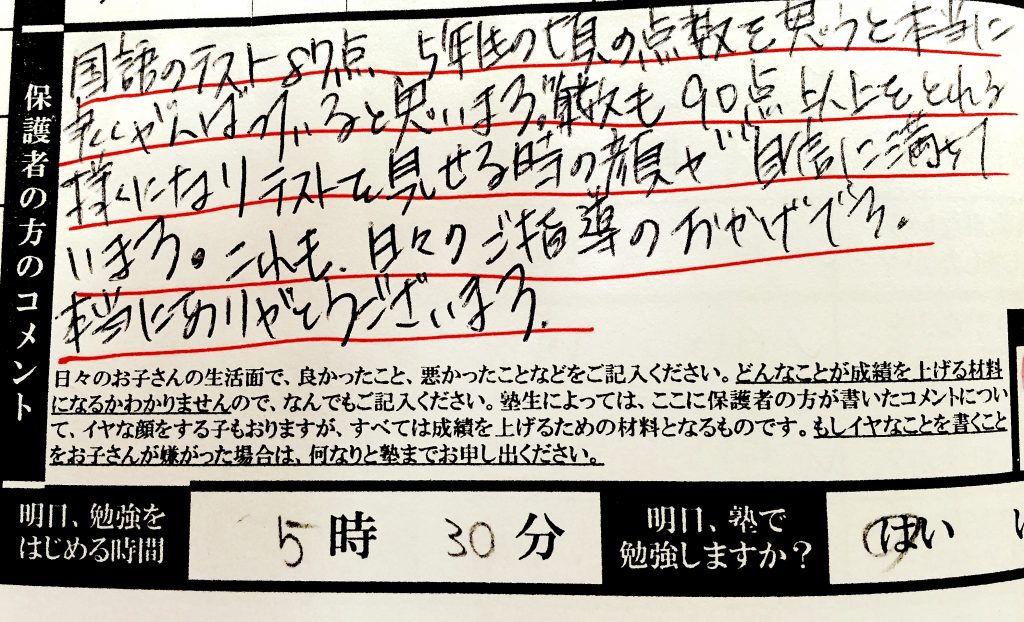 保護者の方のコメント
国語のテスト87点、5年生の頃の点数を思うと本当に
良くがんばっていると思います。算数も90点以上をとれる
様になりテストを見せる時の顔が自信に満ちて
います。これも、日々のご指導のおかげです。
本当にありがとうございます。
日々のお子さんの生活面で、良かったこと、悪かったことなどをご記入ください。どんなことが成績を上げる材料
になるかわかりませんので、なんでもご記入ください。塾生によっては、ここに保護者の方が書いたコメントについ
て、イヤな顔をする子もおりますが、すべては成績を上げるための材料となるものです。もしイヤなことを書くこと
をお子さんが嫌がった場合は、何なりと塾までお申し出ください。
明日、勉強を
はじめる時間
5時30分
明日、塾で
勉強しますか？
はい